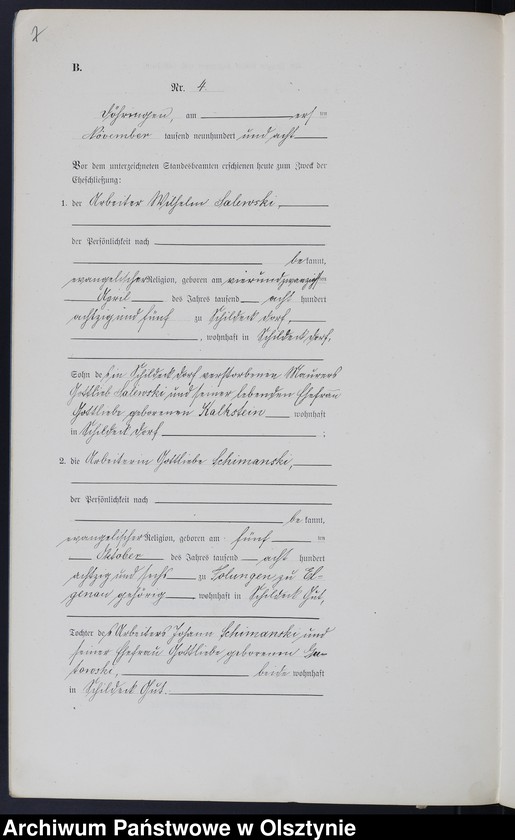 B.
Nr. 4
Döhringen, am ersten
November tausend neunhundert und acht
Vor dem unterzeichneten Standesbeamten erschienen heute zum Zweck der
Eheschließung:
1. der Arbeiter Wilhelm Salewski,
der Persönlichkeit nach
bekannt,
evangelischer Religion, geboren am vierundzwanzigsten
April des Jahres tausend acht hundert
achtzig und fünf zu Schildeck Dorf,
, wohnhaft in Schildeck Dorf,
Sohn des in Schildeck Dorf verstorbenen Maurers
Gottlieb Salewski, und seiner lebenden Ehefrau
Gottliebe, geborenen Kalkstein wohnhaft
in Schildeck Dorf ;
2. die Arbeiterin Gottliebe Schimanski,
der Persönlichkeit nach
bekannt,
evangelischer Religion, geboren am fünften
Oktober des Jahres tausend acht hundert
achtzig und sechs zu zu El-
genau gehörig wohnhaft in Schildeck Gut,
Tochter des Arbeiters Johann Schimanski und
seiner Ehefrau Gottliebe geborenen
beide wohnhaft
in Schildeck Gut.
Archiwum Państwowe w Olsztynie